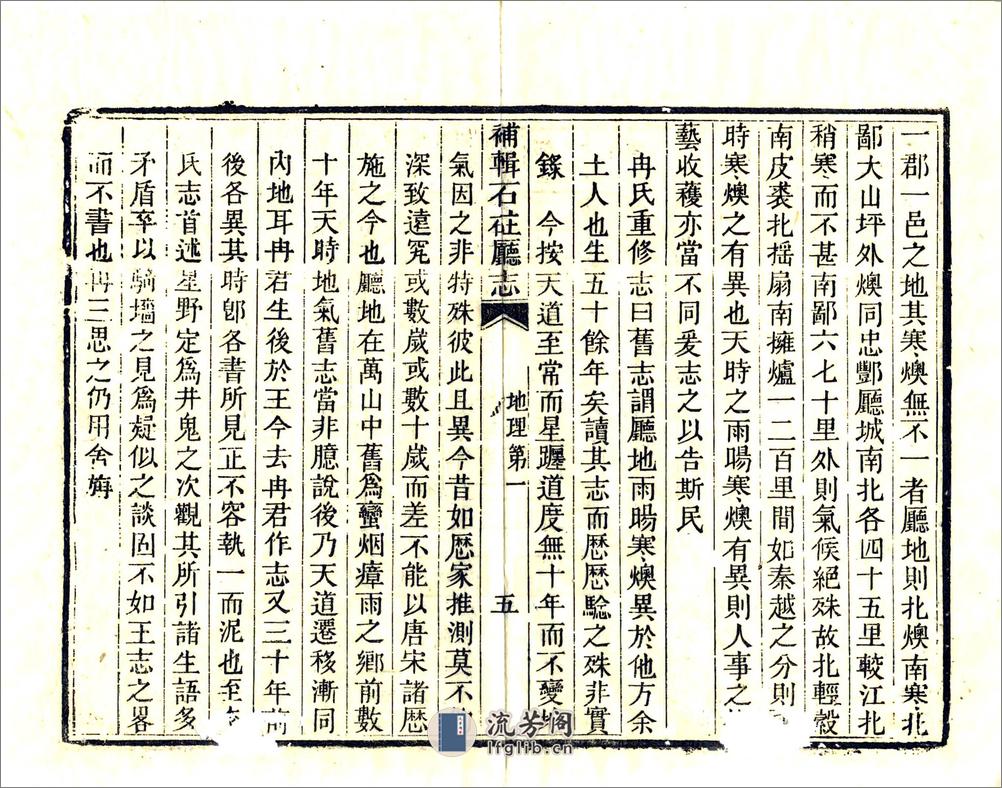 一郡一邑之地其寒燠無不一者廳地則北燠南寒北
鄙大山坪外燠同忠酆廳城南北各四十五里較江北
稍寒而不甚南鄙六七十里外則氣候絕殊故北輕縠
南皮裘北搖扇南擁爐一二百里間如秦越之分則
時寒燠之有異也天時之雨暘寒燠有異則人事之
藝收穫亦當不同爰志之以告斯民
冉氏重修志曰舊志謂廳地雨暘寒燠異於他方余
土人也生五十餘年矣讀其志而歷歷驗之殊非實
錄 今按天道至常而星躔道度無十年而不變
補輯石砫廳志 地理第一 五
氣因之非特殊彼此且異今昔如歷家推測莫不
深致遠宄或數歲或數十歲而差不能以唐宋諸歷
施之今也廳地在萬山中舊為蠻烟瘴雨之鄉前數
十年天時地氣舊志當非臆說後乃天道遷移漸同
內地耳冉君生後於王今去冉君作志又三十年前
後各異其時卽各書所見正不容執一而泥也至
氏志首述星野定為井鬼之次觀其所引諸生語多
矛盾卒以騎墻之見為疑似之談固不如王志之畧
而不書也再三思之仍用舍旃
流芳阁
lfglib.cn